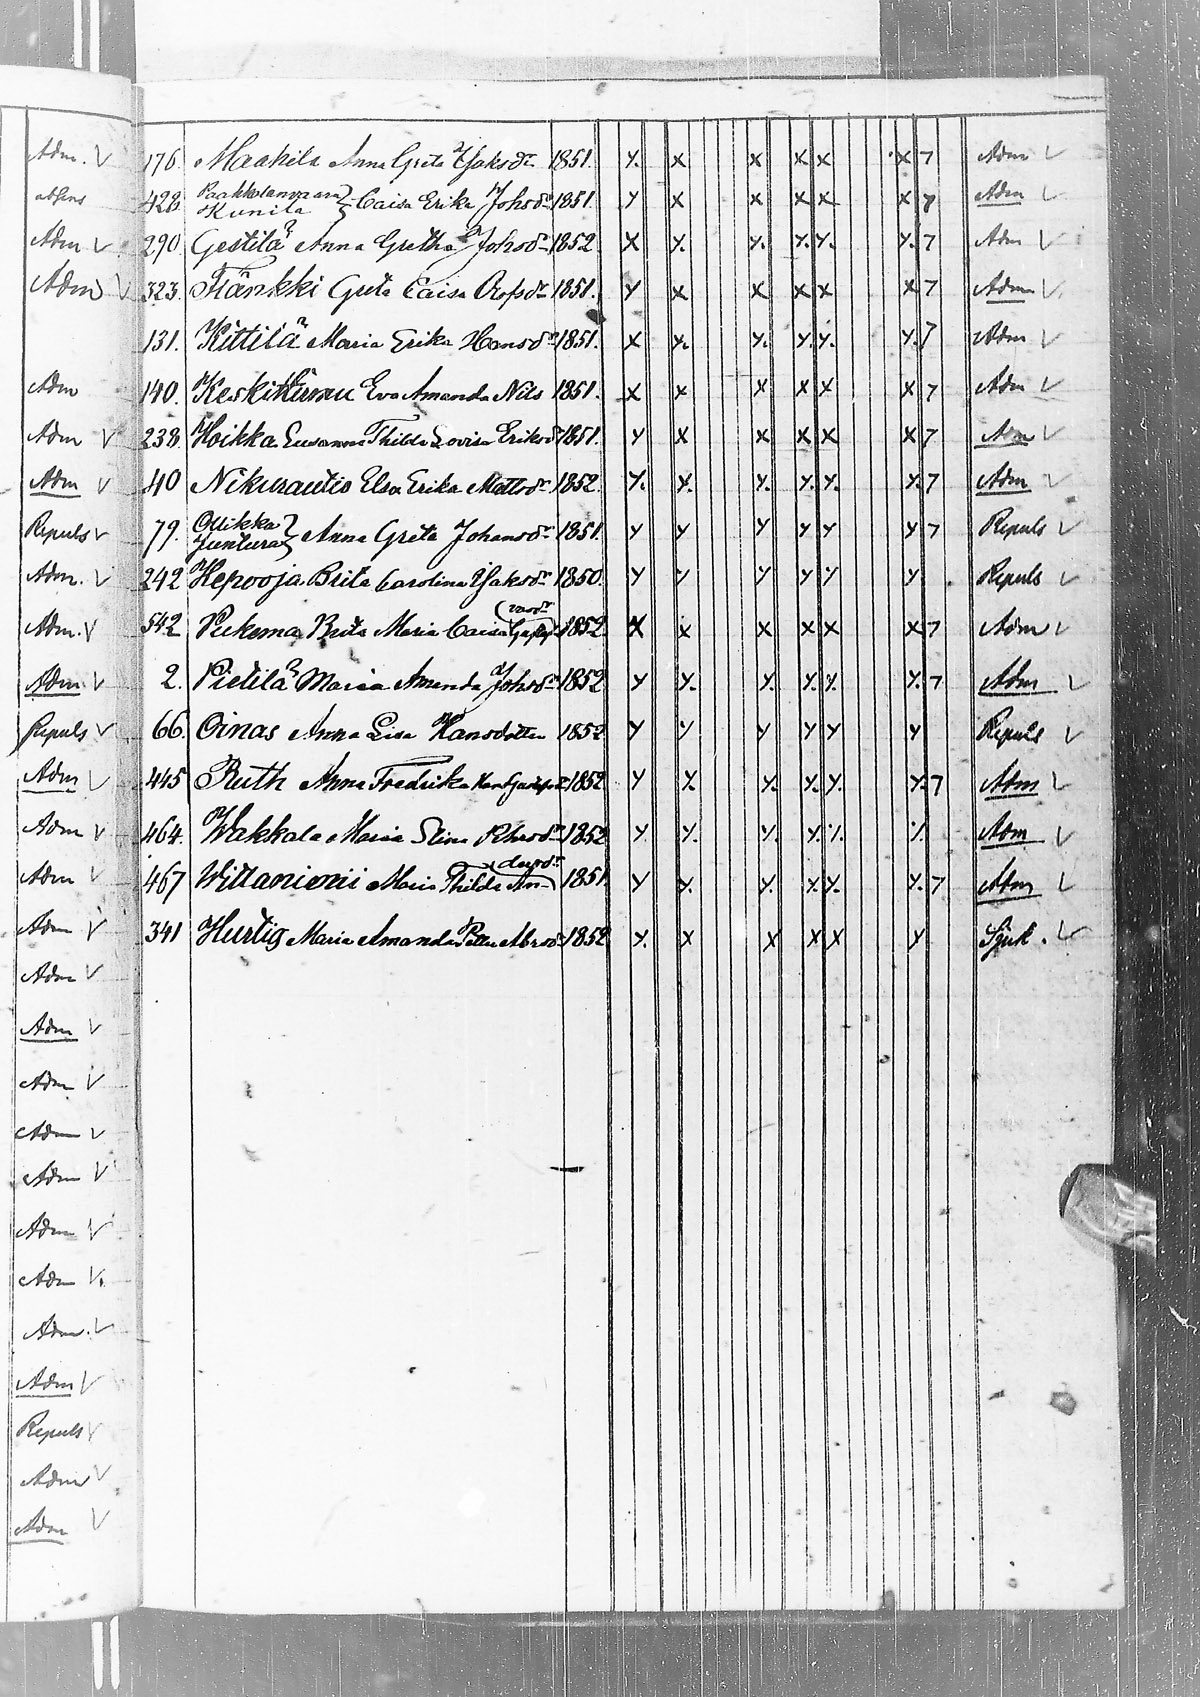 Adm. V
176. Maakila Anna Greta Isaksdr 1851. X. X X X X X 7 Adm V
absens
428 Paahkolanvaara } Caisa Erika Johsdr 1851. Y X X X X X 7 Adm V
Kunila
Adm V
290. Gestilä Anna Gretha Johsdr 1852 X X. X. X. X. X. 7 Adm V
Adm V
323. Fränkki Greta Caisa Olofsdr 1851. Y X X X X X 7 Adm V.
131. Kittilä Maria Erika Hansdr 1851. X X. X. X. X. X. 7 Adm V
Adm
140. Keskikuru Eva Amanda Nils 1851. X X X X X X 7 Adm V
Adm V
238 Hoikka Susanna Thilda Lovisa Eriksdr 1851. Y X X X X X 7 Adm V
Adm V
40 Nikurautio Elsa Erika Mattsdr 1852. X. X. X. X. X. X. 7 Adm V
Repuls V
79. Ollikka } Anna Greta Johansdr 1851. Y Y Y Y Y Y 7 Repuls V
Juntura
Adm. V
242 Hepooja Brita Carolina Isaksdr 1850. Y Y Y Y Y Y Repuls V
Adm. V
542 Pekema Brita Maria Caisa 1852 X X X X X X 7 Adm V
Adm. V
2. Pietilä Maria Amanda Johsdr 1852 Y X. X. X. X. X. 7 Adm V
Repuls V
66. Oinas Anna Lisa Hansdotter 1852 Y Y Y Y Y Y Repuls V
Adm V
445 Ruth Anna Fredrika 1852 Y X. X. X. X. X. 7 Adm V
Adm V
464. Wakkala Maria Stina 1852 Y X. X. X. X. X. Adm V
Adm V
467 Wittaniemi Maria Thilda An- (dersdr 1851. Y X. X. X. X. X. 7 Adm V
Adm V
341 Hurtig Maria Amanda Petter Abrsdr 1852 X. X X X X Y Sjuk. V
Adm V
Adm V
Adm V
Adm V
Adm V
Adm V
Adm V.
Adm. V
Adm V
Repuls V
Adm V
Adm V